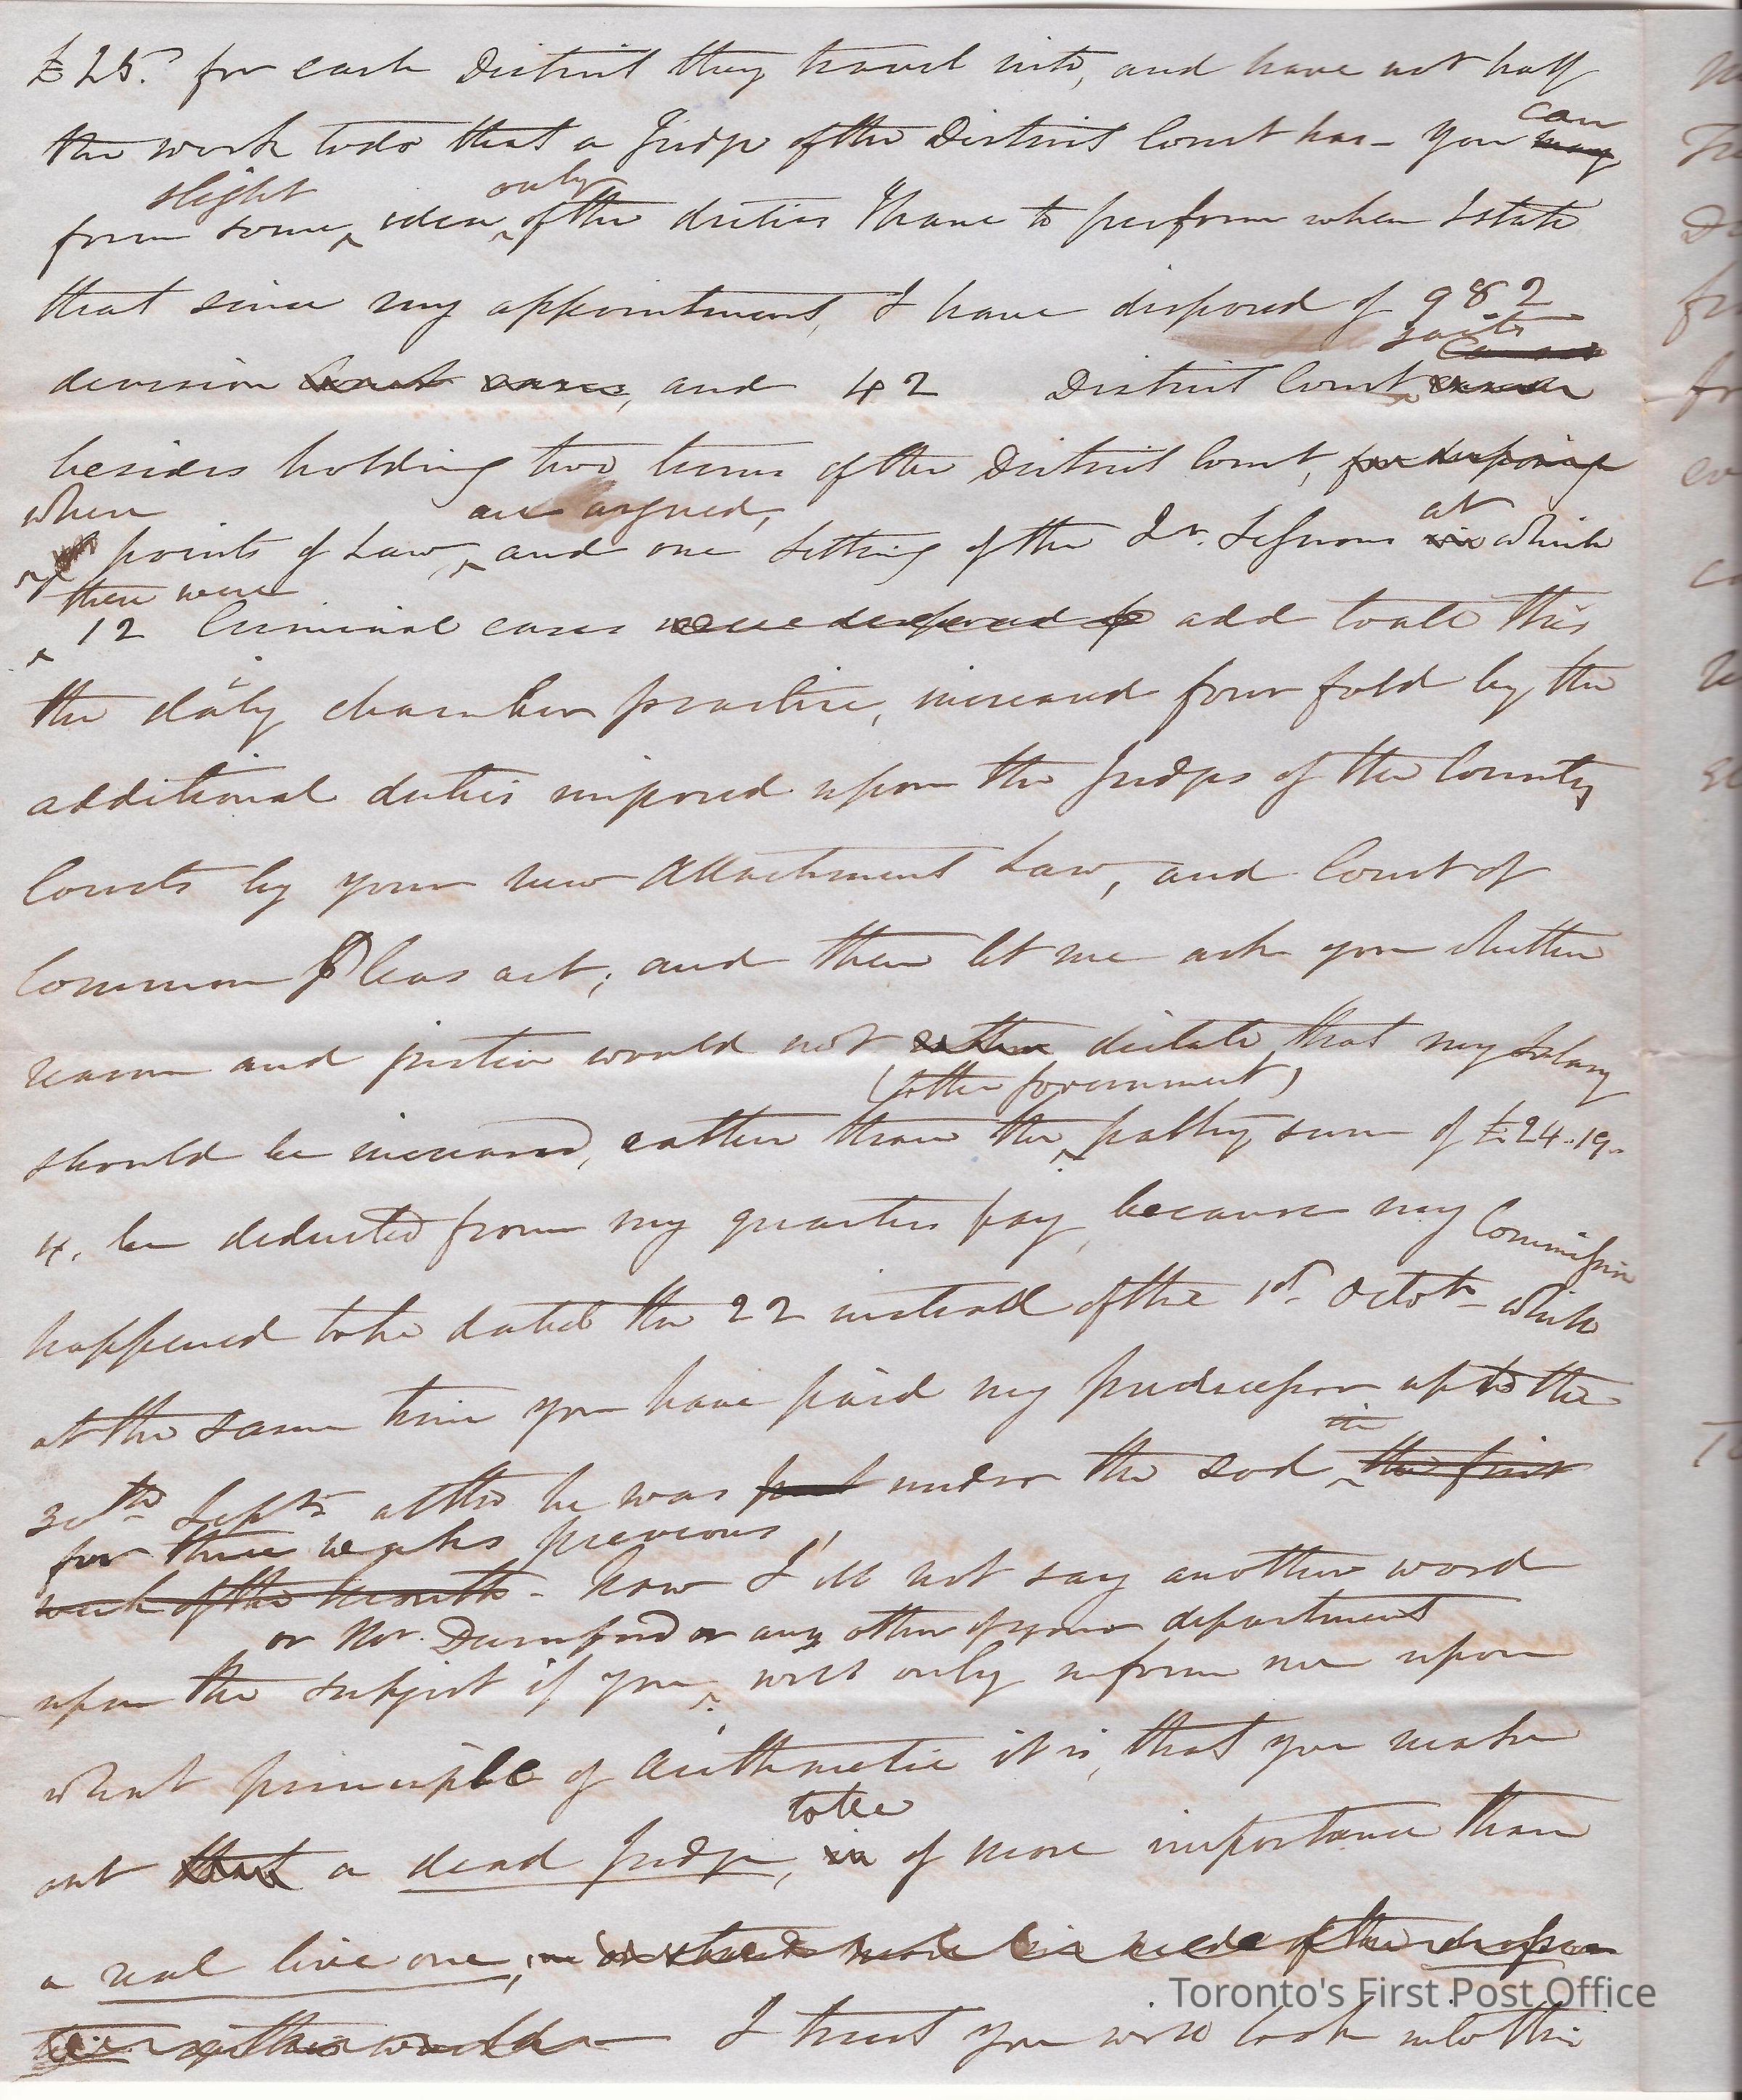 £25. for each District they travel into, and have not half
can
the work to do that a Judge of the District Court has - You may
slight only
form some idea of the duties I have to perform when I state
that since my appointment, I have disposed of 982
suits
division Court cases, and 42 District Court
besides holding two terms of the District Court, for disposing
when are argued,
points of Law, and one Sitting of the Qr. Sessions in which
at
there were
12 Criminal cases were disposed of add to all this
the daily chamber practice, increased four fold by the
additional duties imposed upon the Judges of the County
Courts by your new Attachment Law, and Court of
Common Pleas act; and then let me ask you whether
reason and justice would not rather dictate, that my salary
(to the government)
should be increased, rather than the paltry sum of £24..19..
4. be deducted from my quarters pay, because my Commission
happened to be dated the 22 instead of the 1st Octobr which
at the same time you have paid my predecessor up to the
in
30th Septr altho he was under the sod the first
for three weeks previous
week of the month - Now I'll not say another word
or Mr. Dumford or any other of your department
upon the subject if you will only inform me upon
what principle of Arithmetic it is, that you make
to be
out that a dead Judge, is of more importance than
a real live one,
I trust you will look into this
Toronto's First Post Office